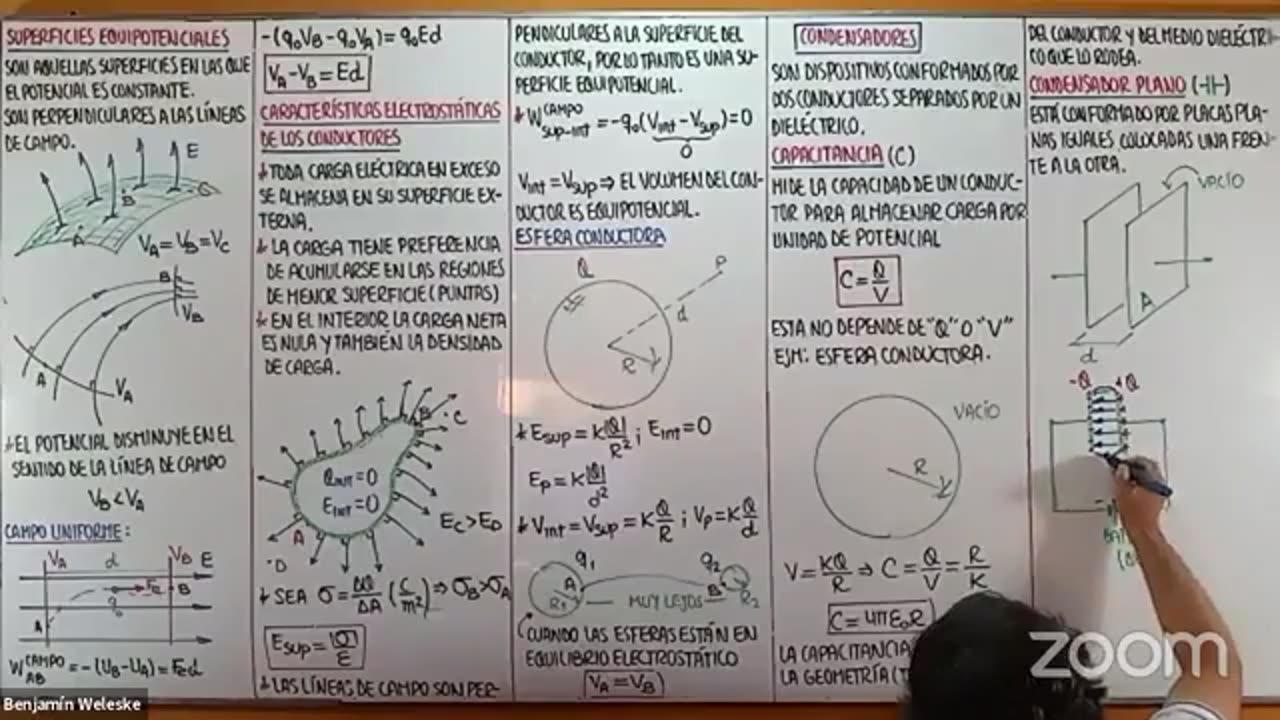 SUPERFICIES EQUIPOTENCIALES
SON AQUELLAS SUPERFICIES EN LAS QUE
EL POTENCIAL ES CONSTANTE.
SON PERPENDICULARES A LAS LÍNEAS
DE CAMPO.
E
A
B
C
V_A = V_B = V_C
B
V_B
A
V_A
* EL POTENCIAL DISMINUYE EN EL
SENTIDO DE LA LÍNEA DE CAMPO
V_B < V_A
CAMPO UNIFORME:
V_A d V_B E
q₀ Fe B
A
W_AB^CAMPO = -(U_B - U_A) = Fe d
-(q₀V_B - q₀V_A) = q₀Ed
V_A - V_B = Ed
CARACTERÍSTICAS ELECTROSTÁTICAS
DE LOS CONDUCTORES
* TODA CARGA ELÉCTRICA EN EXCESO
SE ALMACENA EN SU SUPERFICIE EX-
TERNA.
* LA CARGA TIENE PREFERENCIA
DE ACUMULARSE EN LAS REGIONES
DE MENOR SUPERFICIE (PUNTAS)
* EN EL INTERIOR LA CARGA NETA
ES NULA Y TAMBIÉN LA DENSIDAD
DE CARGA.
B · C
Q_INT = 0
E_INT = 0
A
E_C > E_D
· D
* SEA σ = ΔQ/ΔA (C/m²) ⇒ σ_B > σ_A
E_SUP = |σ|/ε
* LAS LÍNEAS DE CAMPO SON PER-
PENDICULARES A LA SUPERFICIE DEL
CONDUCTOR, POR LO TANTO ES UNA SU-
PERFICIE EQUIPOTENCIAL.
* W_sup-int^CAMPO = -q₀(V_int - V_sup) = 0
0
V_int = V_sup ⇒ EL VOLUMEN DEL CON-
DUCTOR ES EQUIPOTENCIAL.
ESFERA CONDUCTORA
Q P
d
R
* E_sup = K|Q|/R² ; E_int = 0
E_P = K|Q|/d²
* V_int = V_sup = KQ/R ; V_P = KQ/d
q₁ q₂
A B
R₁ MUY LEJOS R₂
CUANDO LAS ESFERAS ESTÁN EN
EQUILIBRIO ELECTROSTÁTICO
V_A = V_B
CONDENSADORES
SON DISPOSITIVOS CONFORMADOS POR
DOS CONDUCTORES SEPARADOS POR UN
DIELÉCTRICO.
CAPACITANCIA (C)
MIDE LA CAPACIDAD DE UN CONDUC-
TOR PARA ALMACENAR CARGA POR
UNIDAD DE POTENCIAL
C = Q/V
ESTA NO DEPENDE DE "Q" O "V"
EJM: ESFERA CONDUCTORA.
VACÍO
R
V = KQ/R ⇒ C = Q/V = R/K
C = 4πε₀R
LA CAPACITANCIA
LA GEOMETRÍA
DEL CONDUCTOR Y DEL MEDIO DIELÉCTRI-
CO QUE LO RODEA.
CONDENSADOR PLANO (⊣⊢)
ESTÁ CONFORMADO POR PLACAS PLA-
NAS IGUALES, COLOCADAS UNA FREN-
TE A LA OTRA.
VACÍO
A
d
-Q +Q
zoom
Benjamín Weleske